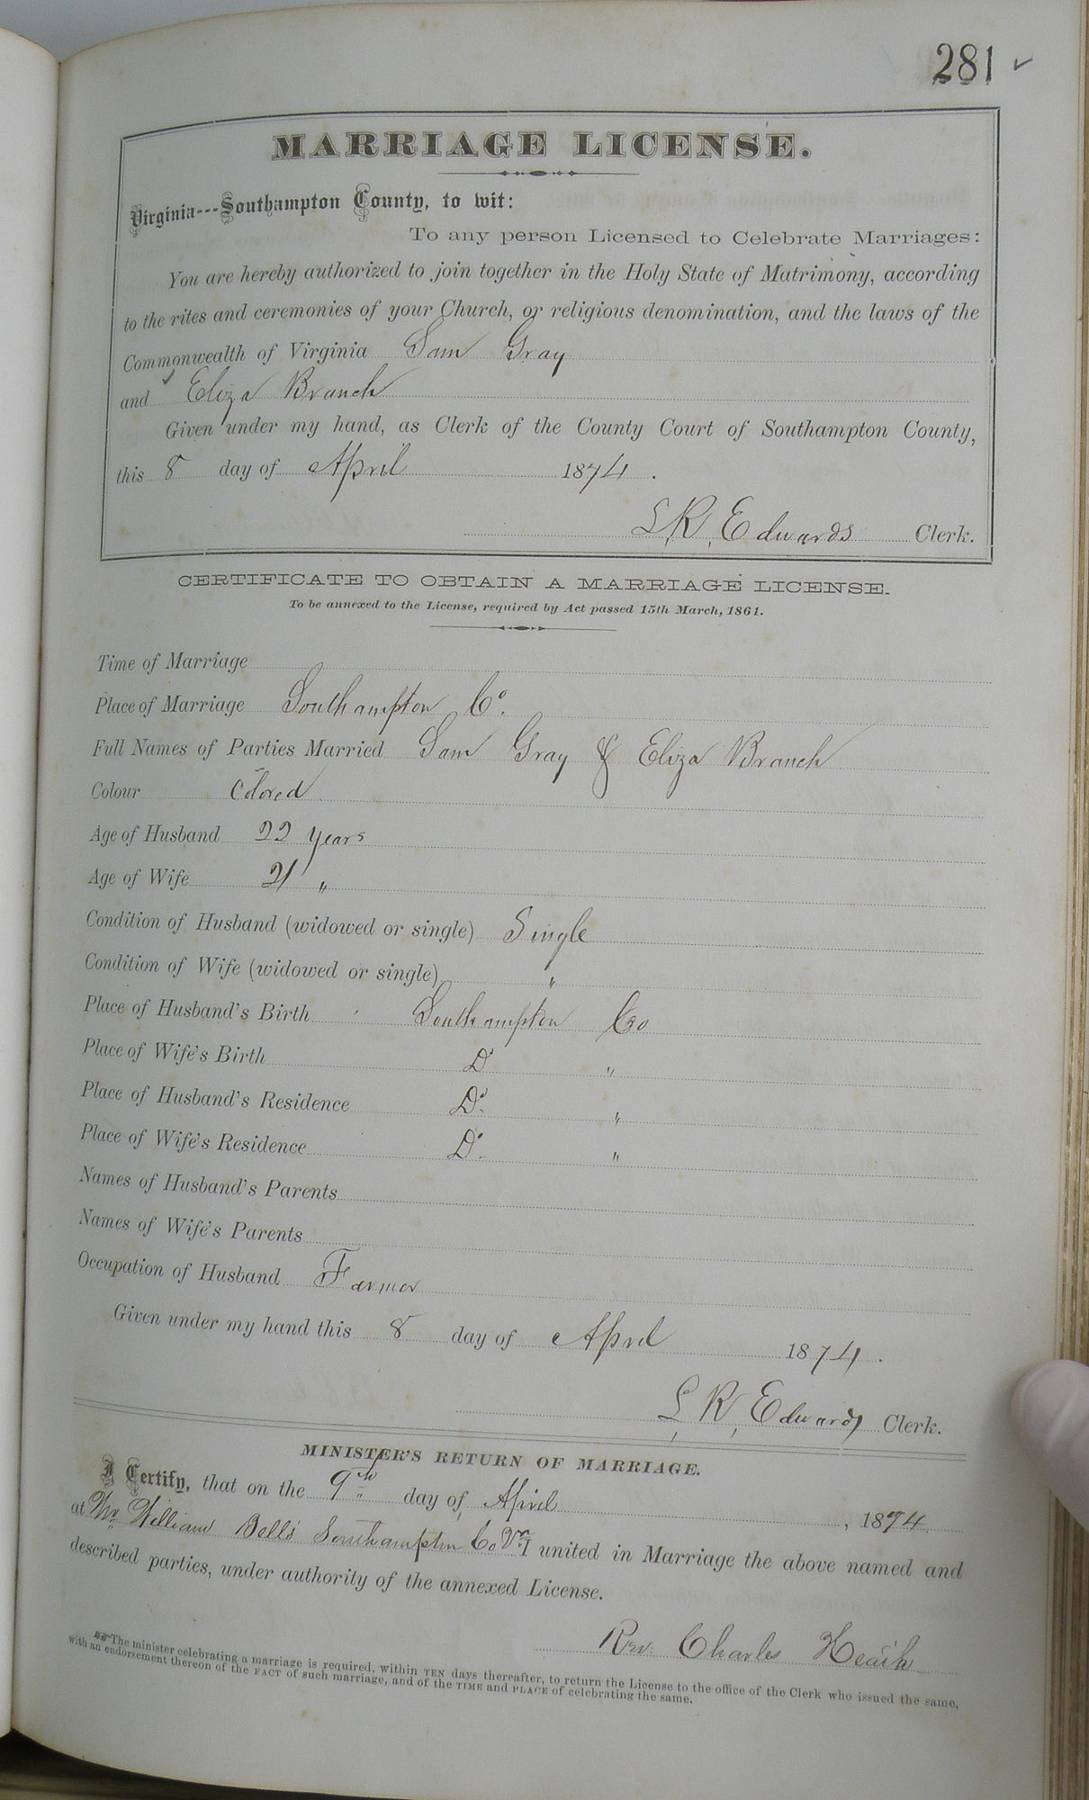 281 ✓
MARRIAGE LICENSE.
Virginia---Southampton County, to wit:
To any person Licensed to Celebrate Marriages:
You are hereby authorized to join together in the Holy State of Matrimony, according
to the rites and ceremonies of your Church, or religious denomination, and the laws of the
Commonwealth of Virginia Sam Gray
and Eliza Branch
Given under my hand, as Clerk of the County Court of Southampton County,
this 8 day of April 1874.
L. R. Edwards Clerk.
CERTIFICATE TO OBTAIN A MARRIAGE LICENSE.
To be annexed to the License, required by Act passed 15th March, 1861.
Time of Marriage
Place of Marriage Southampton Co.
Full Names of Parties Married Sam Gray & Eliza Branch
Colour Colored
Age of Husband 22 years
Age of Wife 21 "
Condition of Husband (widowed or single) Single
Condition of Wife (widowed or single) "
Place of Husband's Birth Southampton Co
Place of Wife's Birth Do "
Place of Husband's Residence Do. "
Place of Wife's Residence Do. "
Names of Husband's Parents
Names of Wife's Parents
Occupation of Husband Farmer
Given under my hand this 8 day of April 1874.
L. R. Edwards Clerk.
MINISTER'S RETURN OF MARRIAGE.
I Certify, that on the 9th day of April, 1874
at Mr William Bells Southampton Co Va I united in Marriage the above named and
described parties, under authority of the annexed License.
Rev. Charles
The minister celebrating a marriage is required, within TEN days thereafter, to return the License to the office of the Clerk who issued the same,
with an endorsement thereon of the FACT of such marriage, and of the TIME and PLACE of celebrating the same.